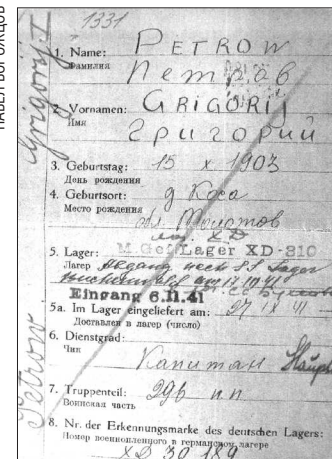 ПАВЕЛ ВОРОЖЦОВ
1331
Grigorij I
Petrow
1. Name: PETROW
Фамилия
Петров
2. Vornamen: GRIGORIJ
Имя
Григорий
3. Geburtstag: 15 X 1903
День рождения
4. Geburtsort: д Коса
Место рождения
5. Lager: M Gef Lager XD-310
Лагерь Abgang nach SS Lager
Eingang 6.11.41
5a. Im Lager eingeliefert am: 27 IX 41
Доставлен в лагер (число)
6. Dienstgrad:
Чин
Капитан
7. Truppenteil: 296 п.п.
Воинская часть
8. Nr. der Erkennungsmarke des deutschen Lagers:
Номер военнопленного в германском лагере
XD 30 189